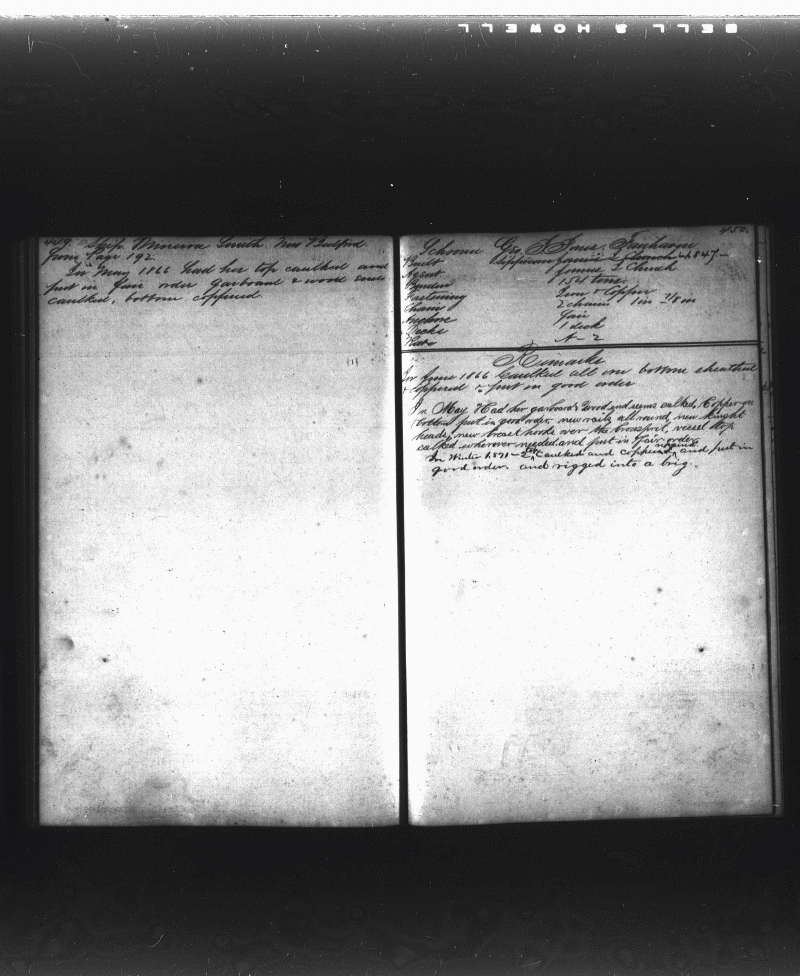 BELL & HOWELL
449. Ship Minerva Smith New Bedford
from Page 192
In May 1866 had her top caulked and
put in fair order garboard & wood ends
caulked, bottom coppered.
450.
Schooner Geo. J. Jones. Fairhaven
Built 1847
Agent James L Church
Burden 154 tons
Fastening Iron & Copper
Chains 2 chains 1 in 7/8 in
Anchors Fair
Decks 1 deck
Rate A-2
Remarks
In June 1866 Caulked all over bottom sheathed
coppered & put in good order
In May Had her garboards wood ends seams calked, Copper on
bottom put in good order, new rails all round, new knight
heads, new breast hooks over the bowsprit, vessel top
calked wherever needed and put in fair order
In Winter 1871-2 Caulked and coppered and put in
good order. and rigged into a brig.